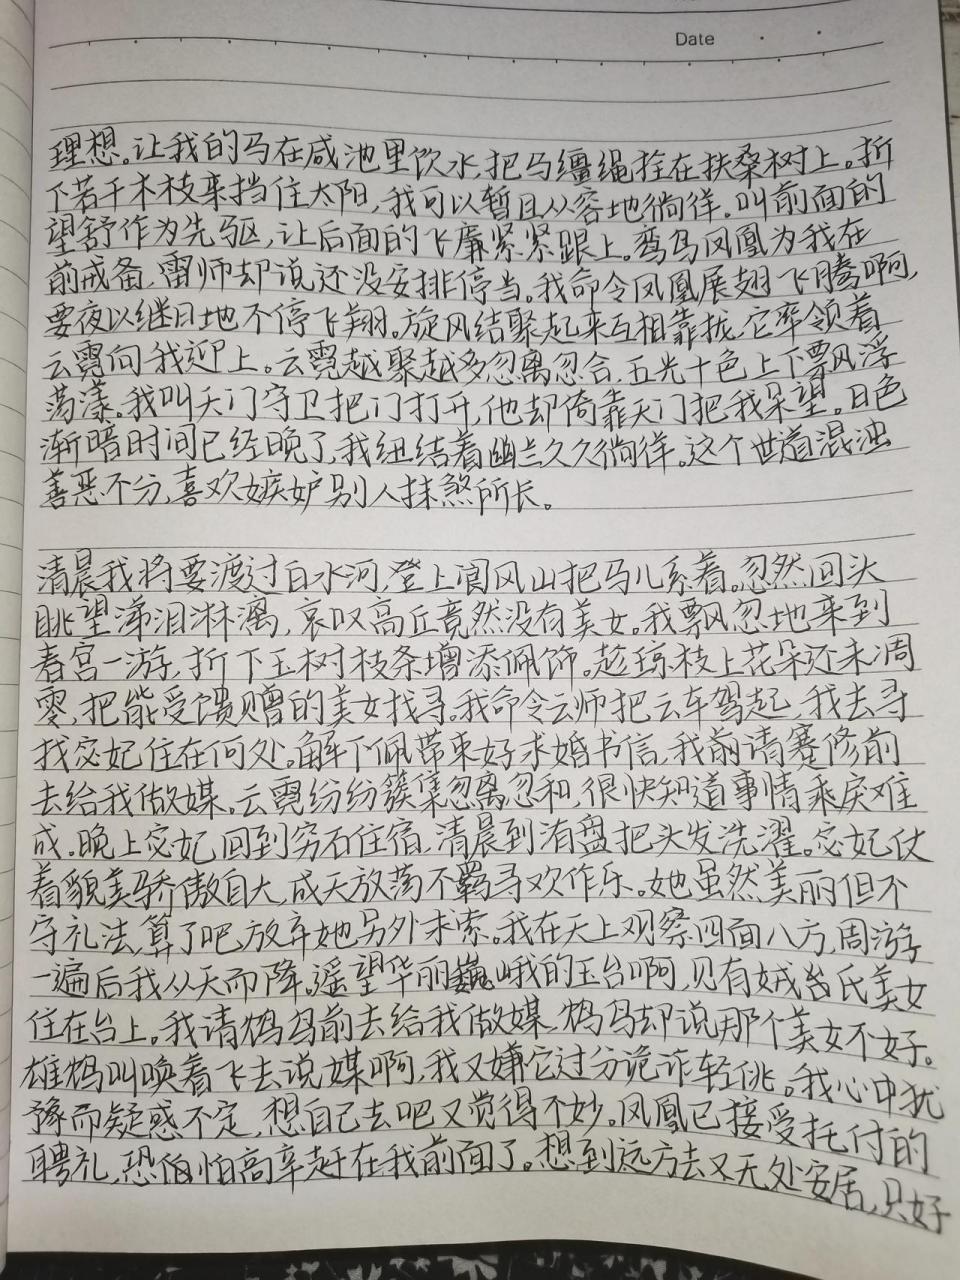 Date
理想。让我的马在咸池里饮水,把马缰绳拴在扶桑树上。折
下若干木枝来挡住太阳,我可以暂且从容地徜徉。叫前面的
望舒作为先驱,让后面的飞廉紧紧跟上。鸾鸟凤凰为我在
前戒备,雷师却说还没安排停当。我命令凤凰展翅飞腾啊,
要夜以继日地不停飞翔。旋风结聚起来互相靠拢,它率领着
云霓向我迎上。云霓越聚越多忽离忽合,五光十色上下飘浮
荡漾。我叫天门守卫把门打开,他却倚靠天门把我呆望。日色
渐暗时间已经晚了,我纽结着幽兰久久徜徉。这个世道混浊
善恶不分,喜欢嫉妒别人抹煞所长。
清晨我将要渡过白水河,登上阆风山把马儿系着。忽然回头
眺望涕泪淋漓,哀叹高丘竟然没有美女。我飘忽地来到
春宫一游,折下玉树枝条增添佩饰。趁琼枝上花朵还未凋
零,把能受馈赠的美女找寻。我命令云师把云车驾起,我去寻
找宓妃住在何处。解下佩带束好求婚书信,我前请蹇修前
去给我做媒。云霓纷纷簇集忽离忽和,很快知道事情乘戾难
成。晚上宓妃回到穷石住宿,清晨到洧盘把头发洗濯。宓妃仗
着貌美骄傲自大,成天放荡不羁寻欢作乐。她虽然美丽但不
守礼法,算了吧放弃她另外求索。我在天上观察四面八方,周游
一遍后我从天而降。遥望华丽巍峨的玉台啊,见有娀氏美女
住在台上。我请鸩鸟前去给我做媒,鸩鸟却说那个美女不好。
雄鸩叫唤着飞去说媒啊,我又嫌它过分诡诈轻佻。我心中犹
豫而疑惑不定,想自己去吧又觉得不妙。凤凰已接受托付的
聘礼,恐怕高辛赶在我前面了。想到远方去又无处安居,只好